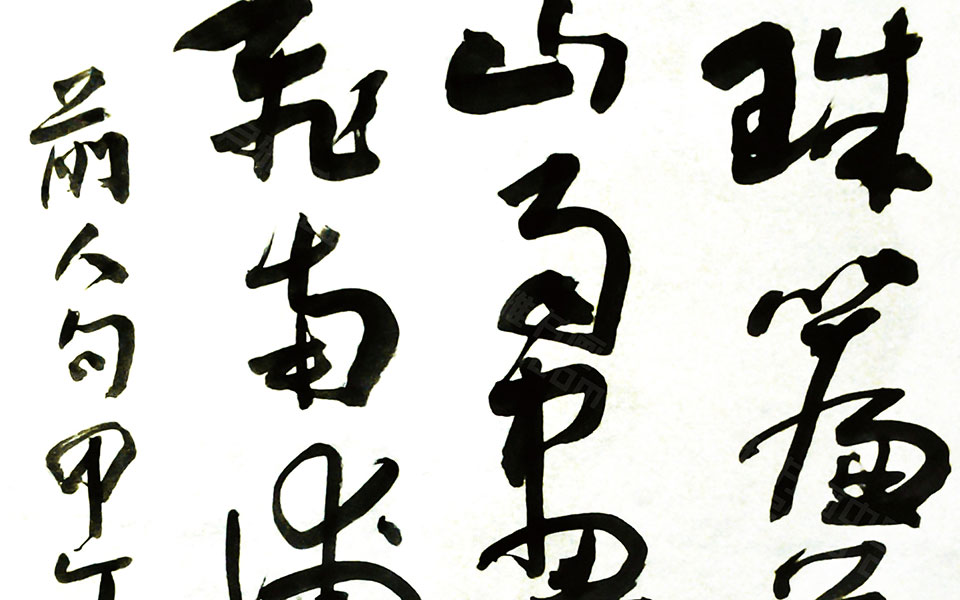 珠簾
山雨畫
飛南浦
前人句甲午